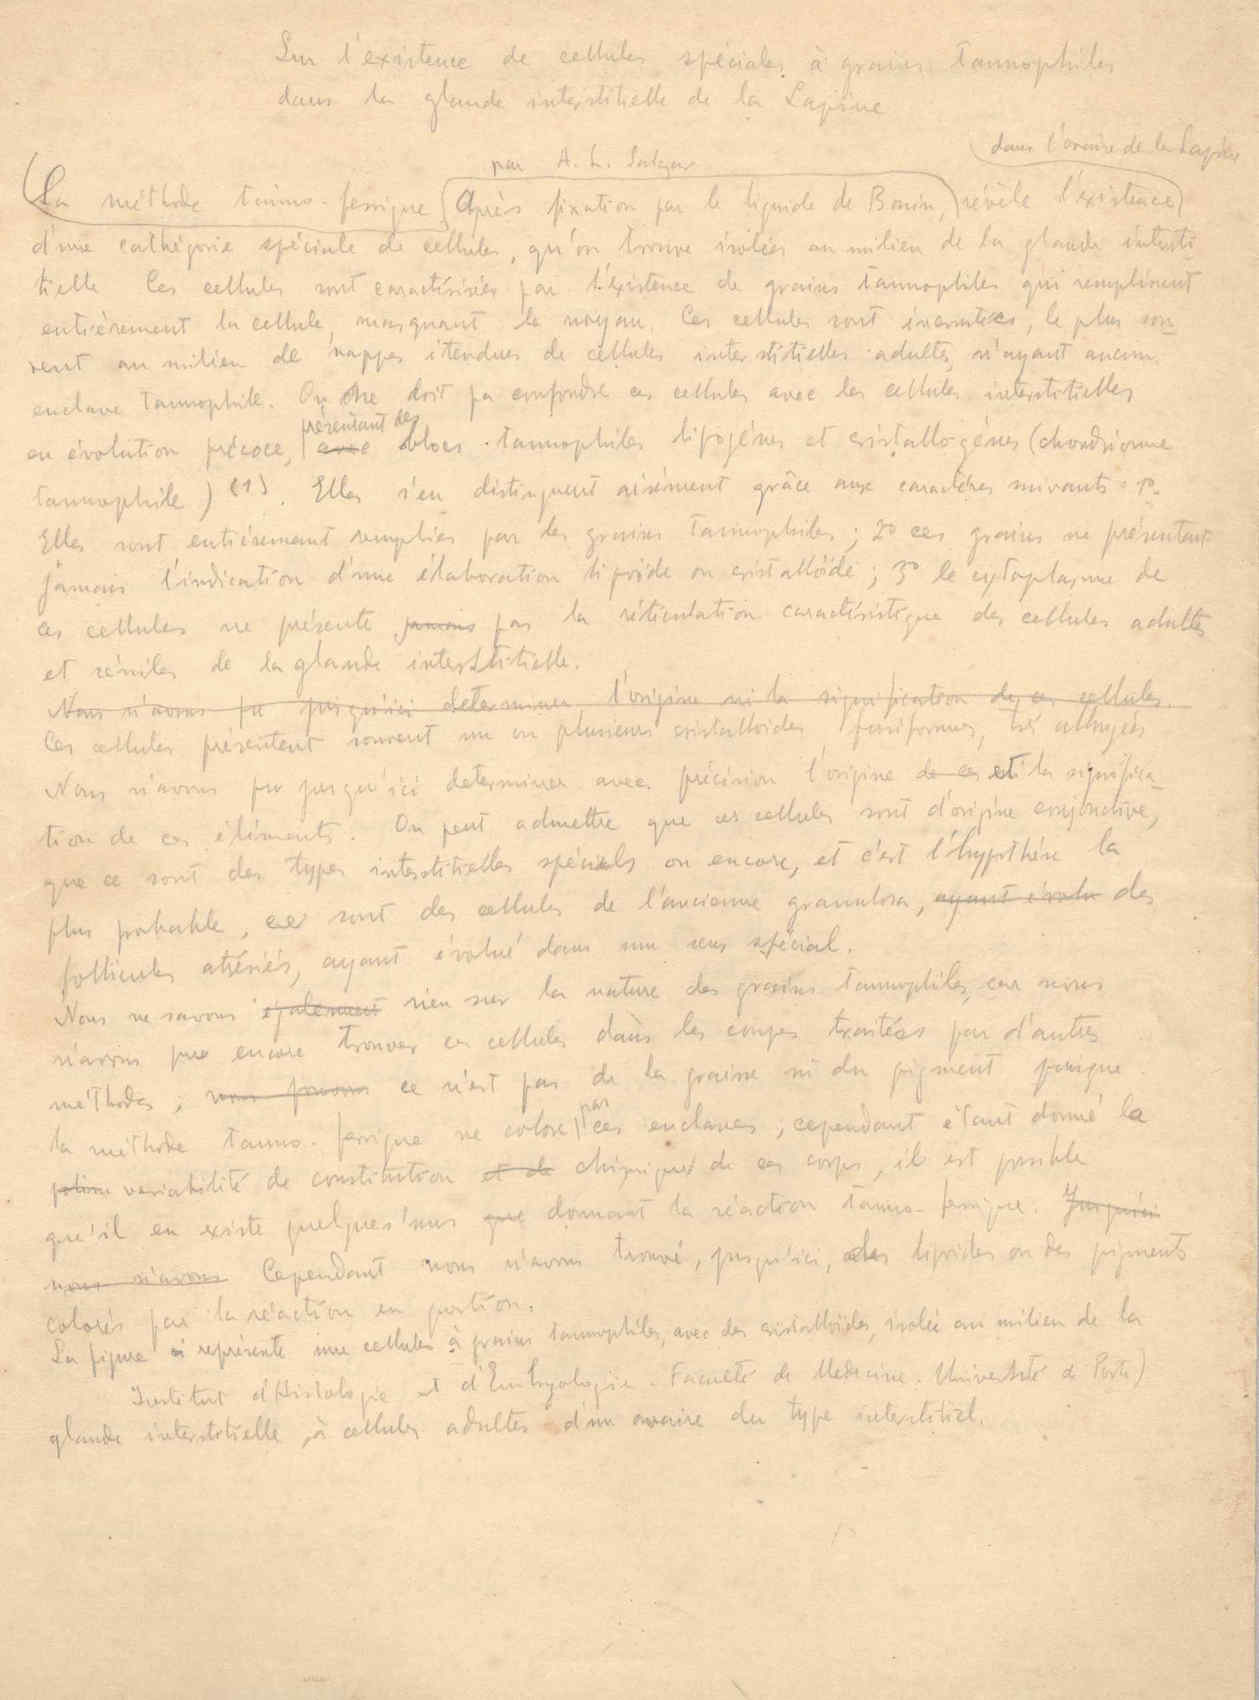 Sur l'existence de cellules spéciales à grains tannophiles
dans la glande interstitielle de la Lapine
par A. L. Salazar
dans l'ovaire de la Lapine
La méthode tanno-ferrique (Après fixation par le liquide de Bouin,) révèle l'existence
d'une cathégorie spéciale de cellules, qu'on trouve isolées au milieu de la glande intersti
tielle Ces cellules sont caractérisées par l'existence de grains tannophiles qui remplissent
entièrement la cellule, masquant le noyau. Ces cellules sont incrustées, le plus sou
vent au milieu de nappes étendues de cellules interstitielles adultes, n'ayant aucun
enclave tannophile. On ne doit pas confondre ces cellules avec les cellules interstitielles
présentant des
en évolution précoce, avec blocs tannophiles lipogènes et cristallogènes (chondriome
tannophile) (1). Elles s'en distinguent aisément grâce aux caractères suivants : 1º
Elles sont entièrement remplies par des grains tannophiles ; 2º ces grains ne présentant
jamais l'indication d'une élaboration lipoïde ou cristalloïde ; 3º le cytoplasme de
ces cellules ne présente jamais pas la réticulation caractéristique des cellules adultes
et séniles de la glande interstitielle.
Nous n'avons pu jusqu'ici determiner l'origine ni la signification de ces cellules.
Ces cellules présentent souvent un ou plusieurs cristalloides fusiformes, très allongés
Nous n'avons pu jusqu'ici determiner avec précision l'origine de ces et la significa
tion de ces éléments. On peut admettre que ces cellules sont d'origine conjonctive,
que ce sont des types interstitielles spéciales ou encore, et c'est l'hypothèse la
plus probable, ce sont des cellules de l'ancienne granulosa, ayant évolu des
follicules atrésiés, ayant évolué dans un sens spécial.
Nous ne savons également rien sur la nature des grains tannophiles, car nous
n'avons pu encore trouver ces cellules dans les coupes traitées par d'autres
méthodes ; nous pouvons ce n'est pas de la graisse ni du pigment puisque
pas
la méthode tanno-ferrique ne colore ces enclaves ; cependant étant donné la
variabilité de constitution et de chimique de ces corps, il est possible
qu'il en existe quelques'uns que donnant la réaction tanno-ferrique. Jusqu'ici
nous n'avons Cependant nous n'avons trouvé, jusqu'ici, des lipoides ou des pigments
colorés par la réaction en question.
La figure représente une cellules à grains tannophiles, avec des cristalloïdes, isolée au milieu de la
Institut d'Histologie et d'Embryologie. Faculté de Medecine. Université de Porto)
glande interstitielle, à cellules adultes d'un ovaire du type interstitiel.